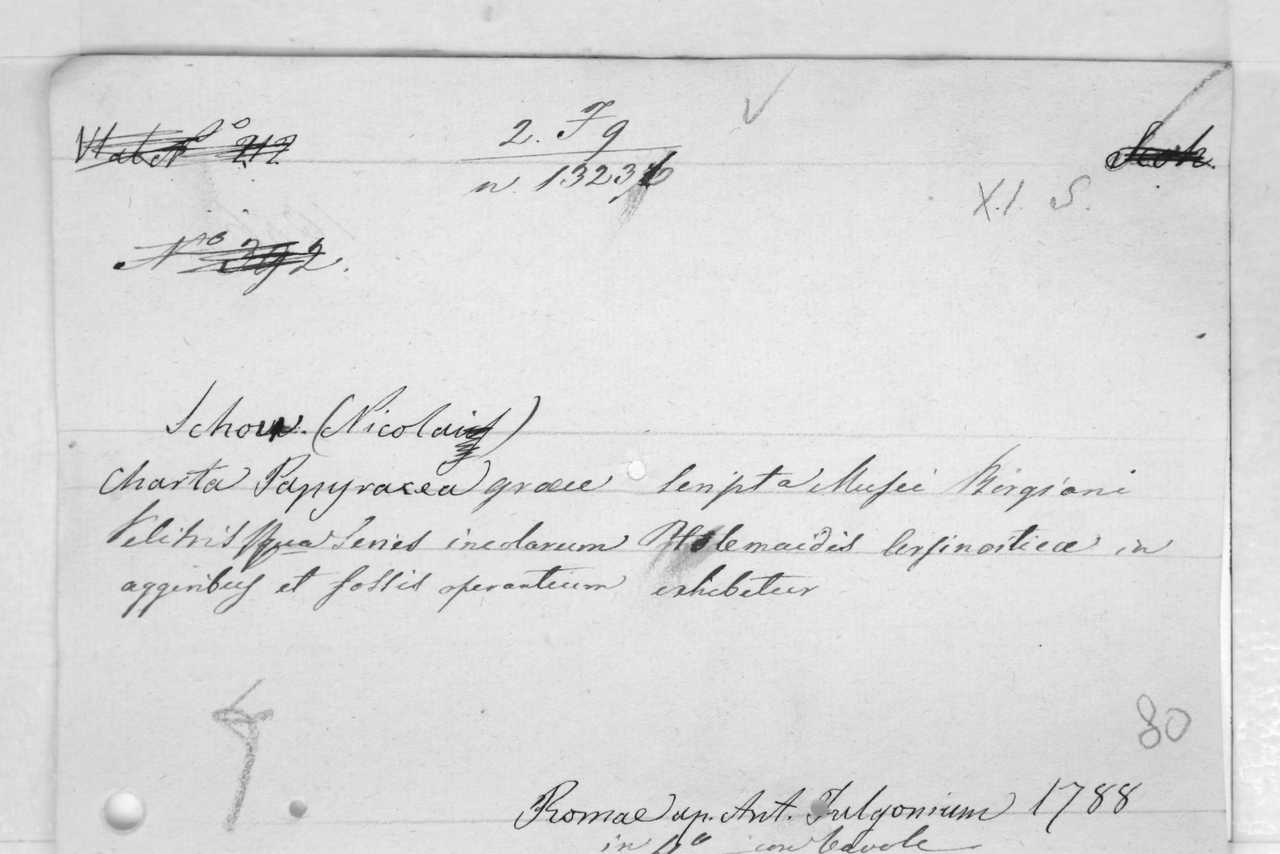 2. Fg
n. 13236
X.I S.
No 392.
Schow. (Nicolai)
Charta Papyracea graece scripta Musei Borgiani
Velitris qua series incolarum Ptolemaidis Arsinoiticae in
aggeribus et fossis operantium exhibetur
80
Romae ap. Ant. Fulgonium 1788
in 4o con tavole